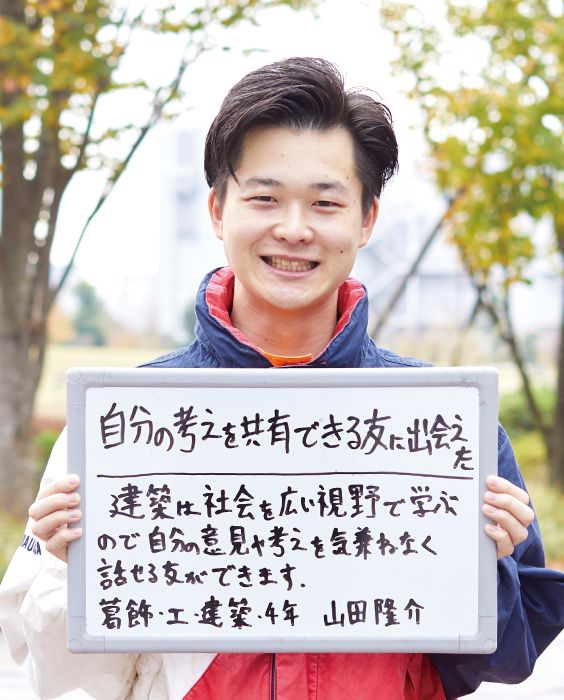 自分の考えを共有できる友に出会えた
建築は社会を広い視野で学ぶ
ので自分の意見や考えを気兼ねなく
話せる友ができます.
葛飾・工・建築・4年 山田隆介